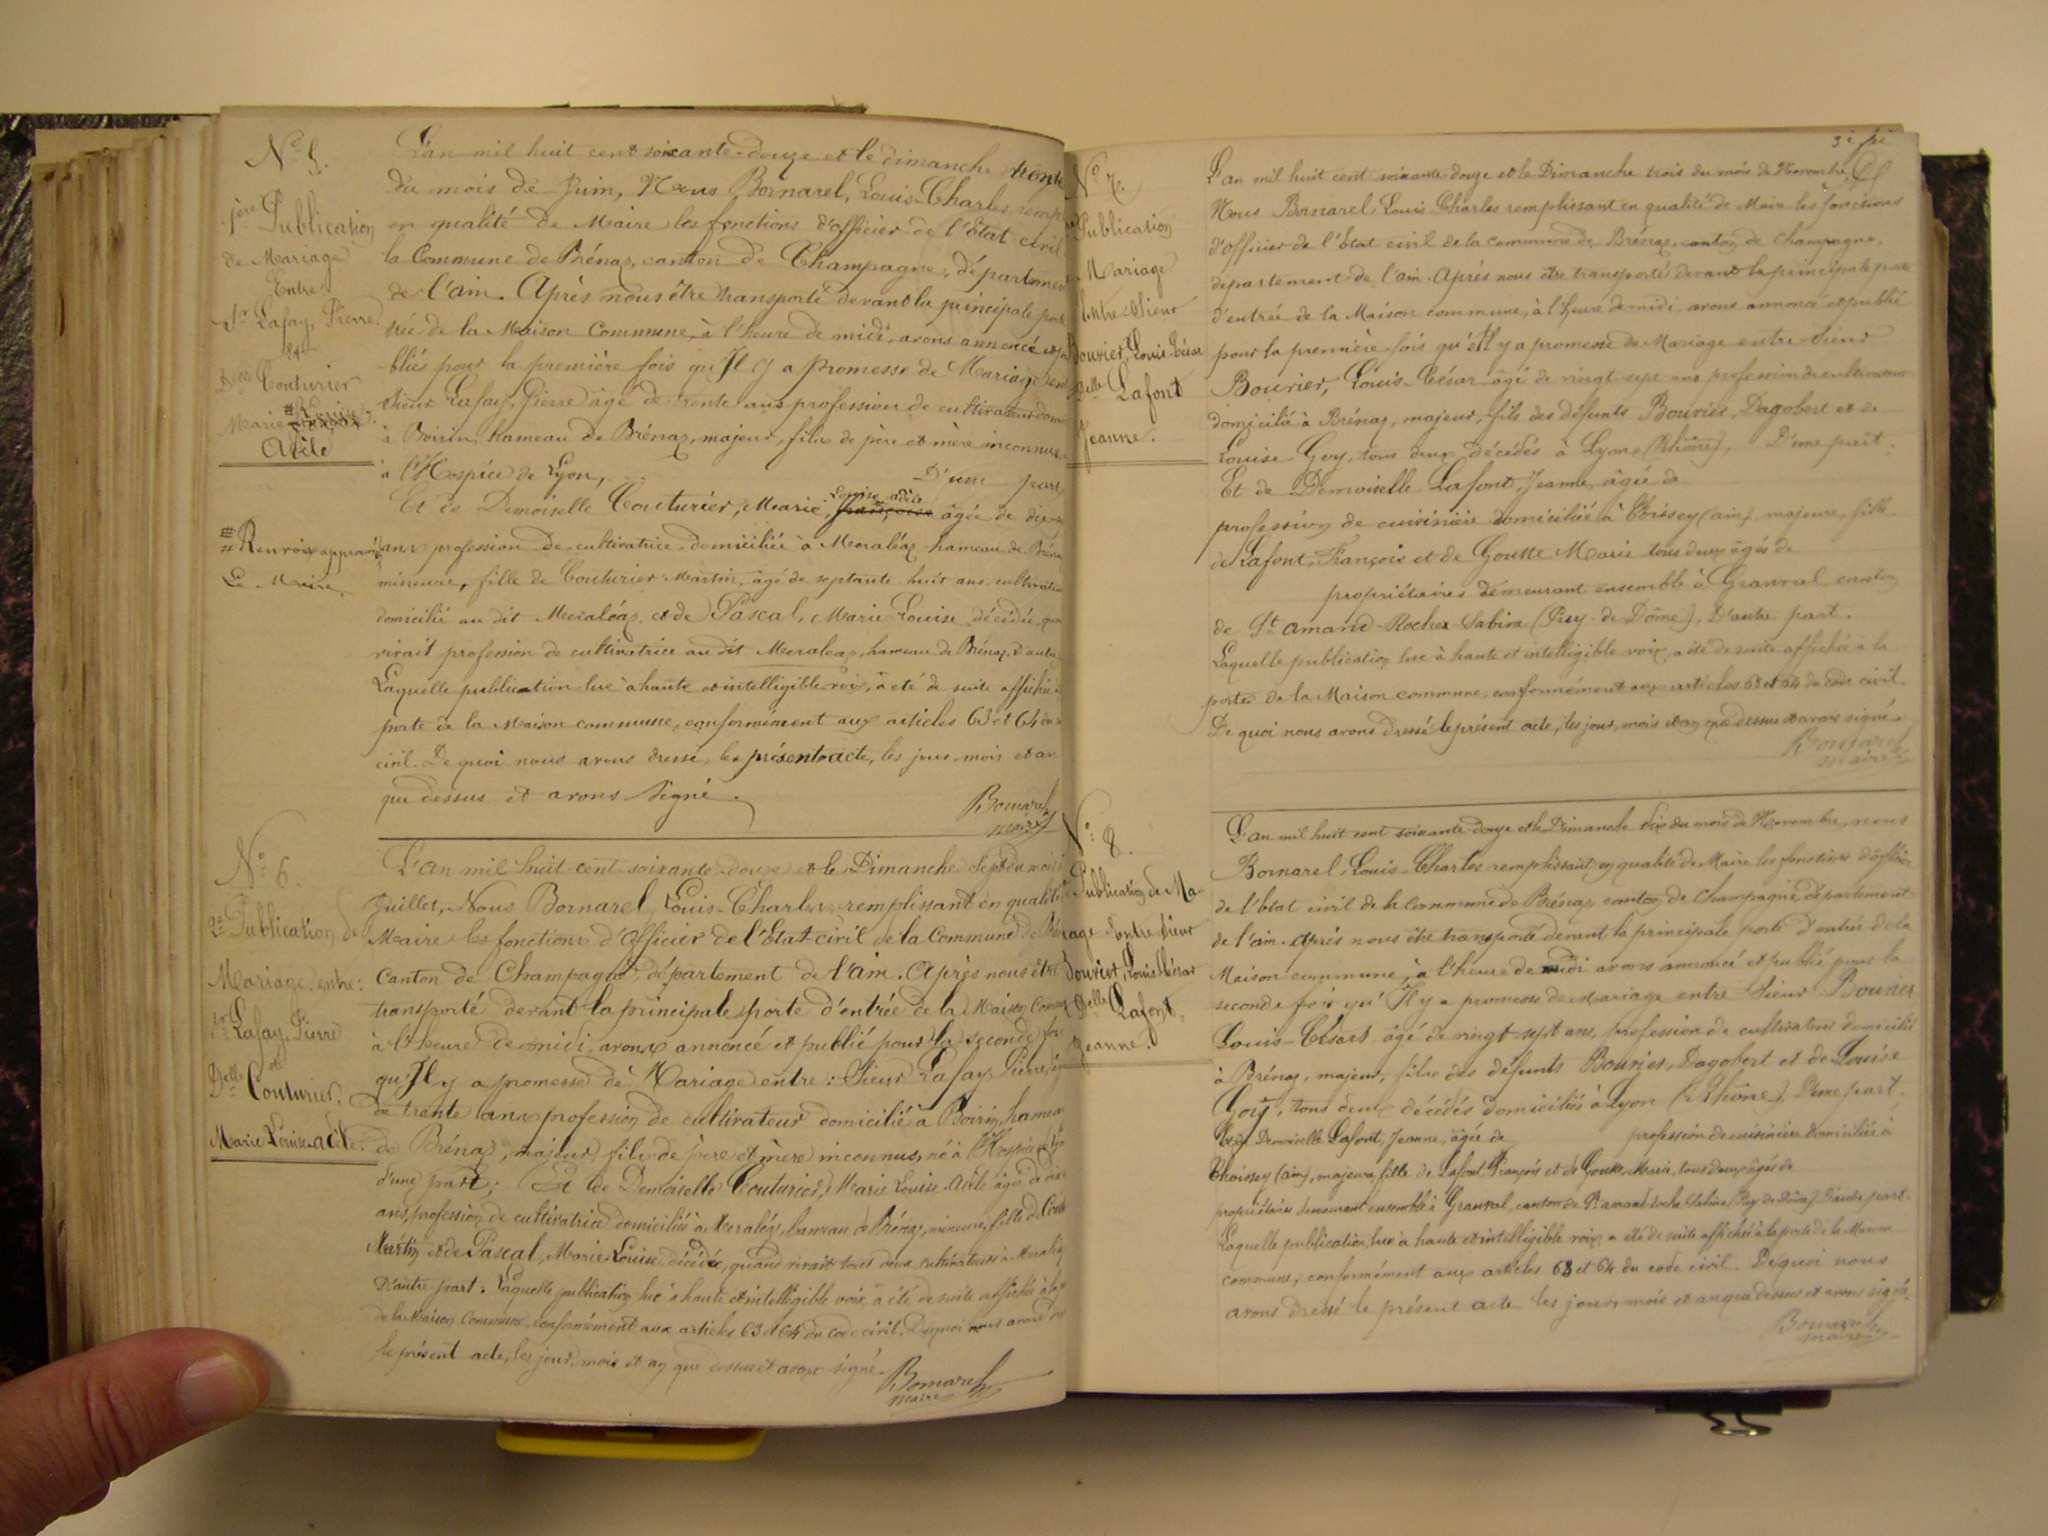 N° 5.
1ère Publication
de Mariage
Entre
Sr Lafay, Pierre
et
Delle Couturier
Marie Louise
Adèle
# Renvoi approuvé
Le Maire,
L'an mil huit cent soixante-douze et le dimanche trente
du mois de Juin, Nous Bornarel, Louis-Charles, rempl
en qualité de Maire les fonctions d'officier de l'Etat civil
la Commune de Brénaz, canton de Champagne, départemen
de l'ain. Après nous être transporté devant la principale port
trée de la Maison Commune, à l'heure de midi, avons annoncé et pu
bliés pour la première fois qu'Il y a promesse de Mariage ent
Sieur Lafay, Pierre âgé de trente ans profession de cultivateur domi
à Boirin, hameau de Brénaz, majeur, fils de père et mère inconnus
à l'Hospice de Lyon, D'une part
Et de Demoiselle Couturier, Marie, Louise adèle françoise âgée de dix-
ans profession de cultivatrice domiciliée à Meraléaz hameau de Bréna
mineure, fille de Couturier Martin âgé de septante-huit ans cultivateu
domicilié au dit Meraléaz, et de Pascal, Marie Louise décédée, qua
vivait profession de cultivatrice au dit Meraléaz, hameau de Brénaz, D'autre
Laquelle publication lue à haute et intelligible voix, a été de suite affichée à
porte de la Maison commune, conformément aux articles 63 et 64 du c
civil. De quoi nous avons dressé, le présent acte, les jour, mois et an
que dessus et avons signé.
Bornarel
maire
N° 6.
2e Publication de
Mariage entre:
Sr Lafay Pierre
et
Delle Couturier,
Marie Louise-adèle.
L'an mil huit cent soixante-douze et le Dimanche Sept du mois d
Juillet, Nous Bornarel, Louis-Charles, remplissant en qualité
Maire les fonctions d'Officier de l'Etat-civil de la Commune de Brén
canton de Champagne, département de l'ain. Après nous être
transporté devant la principale porte d'entrée de la Maison Comm
à l'heure de midi, avons annoncé et publié pour la seconde foi
qu'Il y a promesse de Mariage entre: Sieur Lafay Pierre, âg
de trente ans profession de cultivateur domicilié à Boirin, hamea
de Brénaz, majeur, fils de père et mère inconnus, né à l'Hospice
d'une part; Et de Demoiselle Couturier, Marie Louise-Adèle âgée de dix
ans, profession de cultivatrice domiciliée à Meraléaz, hameau de Brénaz, mineure, fille de Coutu
Martin et de Pascal, Marie Louise, décédée, quand vivait tous deux cultivateurs à Meraléaz
D'autre part. Laquelle publication lue à haute et intelligible voix, a été de suite affichée à la p
de la Maison Commune, conformément aux articles 63 et 64 du code civil. De quoi nous avons dre
le présent acte, les jour, mois et an que dessus et avons signé.
Bornarel
maire
3e
N° 7.
Publication
Mariage
Entre Sieur
Bouvier, Louis-César
Delle Lafont
Jeanne.
L'an mil huit cent soixante-douze et le Dimanche trois du mois de Novembre,
Nous Bornarel, Louis-Charles remplissant en qualité de Maire les fonctions
d'officier de l'Etat civil de la commune de Brénaz, canton de Champagne,
département de l'ain. Après nous être transporté devant la principale porte
d'entrée de la Maison commune, à l'heure de midi avons annoncé et publié
pour la première fois qu'Il y a promesse de Mariage entre Sieur
Bouvier, Louis-César âgé de vingt sept ans profession de cultivateur
domicilié à Brénaz, majeur, fils des défunts Bouvier, Dagobert et de
Louise Goy, tous deux décédés à Lyon (Rhône), D'une part.
Et de Demoiselle Lafont, Jeanne, âgée de
profession de cuisinière domiciliée à Thoissey (ain), majeure, fille
de Lafont, François et de Goutte Marie tous deux âgés de
propriétaires demeurant ensemble à Granval canton
de St amand-Roche-Savine (Puy-de-Dôme), D'autre part.
Laquelle publication lue à haute et intelligible voix, a été de suite affichée à la
porte de la Maison commune, conformément aux articles 63 et 64 du code civil.
De quoi nous avons dressé le présent acte, les jour, mois et an que dessus et avons signé.
Bornarel
maire
N° 8.
Publication de Ma-
riage Entre Sieur
Bouvier, Louis César
Delle Lafont,
Jeanne.
L'an mil huit cent soixante-douze et le Dimanche dix du mois de Novembre, nous
Bornarel, Louis-Charles remplissant en qualité de Maire les fonctions d'officier
de l'Etat civil de la commune de Brénaz canton de Champagne, département
de l'ain. Après nous être transporté devant la principale porte d'entrée de la
Maison commune, à l'heure de midi avons annoncé et publié pour la
seconde fois qu'Il y a promesse de Mariage entre Sieur Bouvier
Louis-César, âgé de vingt-sept ans, profession de cultivateur domicilié
à Brénaz, majeur, fils des défunts Bouvier, Dagobert et de Louise
Goy, tous deux décédés domiciliés à Lyon (Rhône), D'une part.
Et de Demoiselle Lafont, Jeanne, âgée de profession de cuisinière domiciliée à
Thoissey (ain), majeure, fille de Lafont François et de Goutte Marie, tous deux âgés de
propriétaires demeurant ensemble à Granval, canton de St amand-Roche-Savine (Puy de Dôme), D'autre part.
Laquelle publication, lue à haute et intelligible voix, a été de suite affichée à la porte de la Maison
commune, conformément aux articles 63 et 64 du code civil. De quoi nous
avons dressé le présent acte les jour, mois et an que dessus et avons signé.
Bornarel
maire